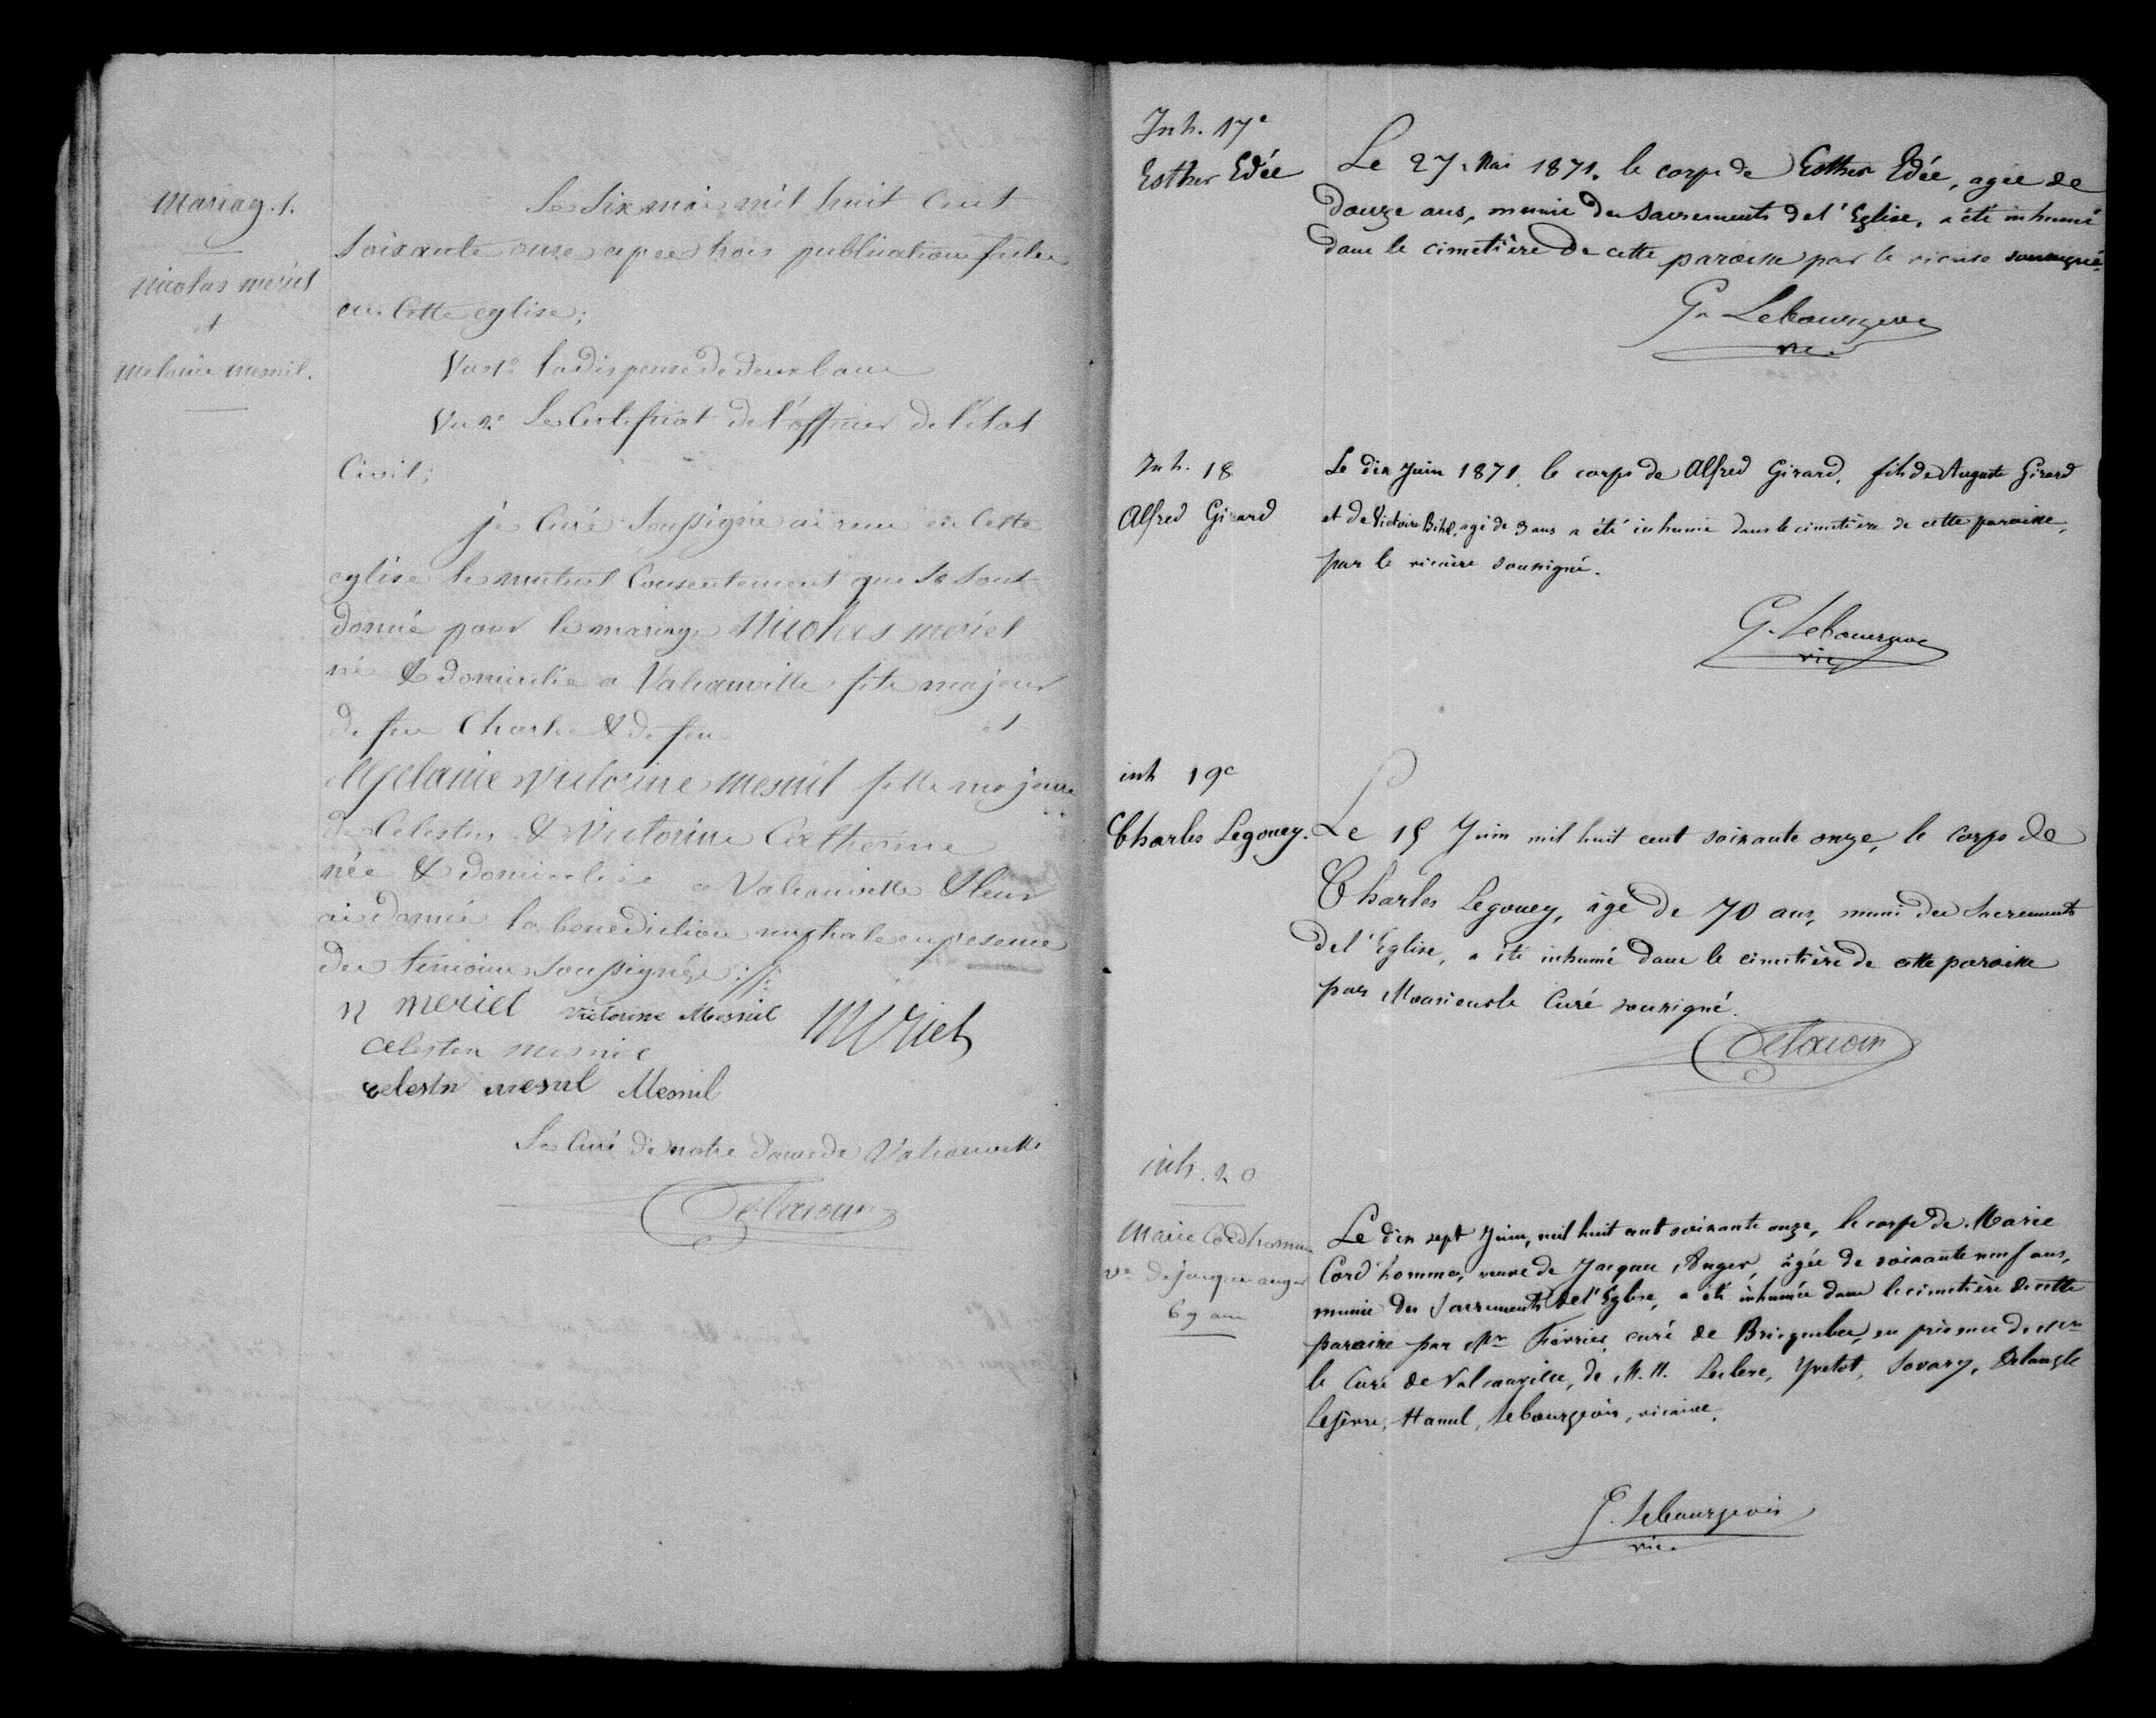 Mariag. 1.
Nicolas Meriel
et
Melanie Mesnil.
Le Six mai mil huit Cent
Soixante onze apres trois publications faites
en Cette eglise;
Vu 1° la dispense de deux bans
Vu 2° Le Certificat de l'officier de l'état
Civil;
je Curé Soussigné ai recu en Cette
eglise le mutuel Consentement que Se Sont
donné pour le mariage Nicolas Meriel
né & domicilié a Valcanville fils majeur
de feu Charles & de feu et
Melanie Victorine Mesnil fille majeure
de Celestin & Victorine Catherine
née & domiciliée a Valcanville & leur
ai donné la benediction nuptiale en presence
des temoins Soussignés :
N Meriel Victorine Mesnil Meriel
Celesten mesnil
Celestn mesnil Mesnil
Le Curé de notre dame de Valcanville
Inh. 17e
Esther Edée
Le 27 Mai 1871. le corps de Esther Edée, agée de
douze ans, munie des Sacrements de l'Eglise, a été inhumé
dans le cimetière de cette paroisse par le vicaire soussigné.
G. Lebourgeois
vic.
Inh. 18
Alfred Girard
Le dix Juin 1871, le corps de Alfred Girard, fils de Auguste Girard
et de Victoire, agé de 3 ans a été inhumé dans le cimetière de cette paroisse,
par le vicaire soussigné.
G. Lebourgeois
vic
inh 19e
Charles Legouey.
Le 15 Juin mil huit cent soixante onze, le corps de
Charles Legouey, âgé de 70 ans, muni des Sacrements
de l'Eglise, a été inhumé dans le cimetière de cette paroisse
par Monsieur le Curé soussigné.
inh. 20
Marie Cordhomme
ve. de jacques anger
69 ans
Le dix sept Juin, mil huit cent soixante onze, le corps de Marie
Cord'homme, veuve de Jacques Anger, âgée de soixante neuf ans,
munie des Sacrements de l'Eglise, a été inhumée dans le cimetière de cette
paroisse par Mr curé de Bricquebec, en présence de Mr
le Curé de Valcanville, de M.M. Leclerc, Yvetot, Savary, Delangle
Lefèvre, Hamel, Lebourgeois, vicaire.
G. Lebourgeois
vic.